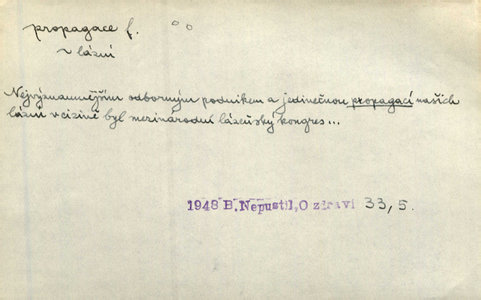 propagace f.
~ lázní
Nejvýznamnějším odborným podnikem a jedinečnou propagací našich
lázní v cizině byl mezinárodní lázeňský kongres...
1948 B.Nepustil,O zdraví 33, 5.